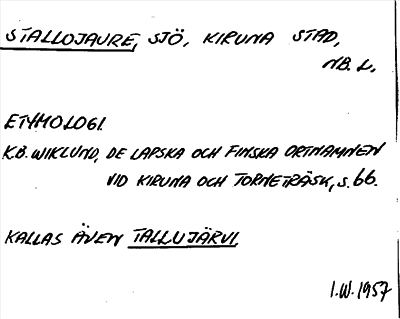 STALLOJAURE, SJÖ, KIRUNA STAD,
NB. L.
ETYMOLOGI.
K.B. WIKLUND, DE LAPSKA OCH FINSKA ORTNAMNEN
VID KIRUNA OCH TORNETRÄSK, S. 66.
KALLAS ÄVEN TALLUJÄRVI.
I.W. 1957